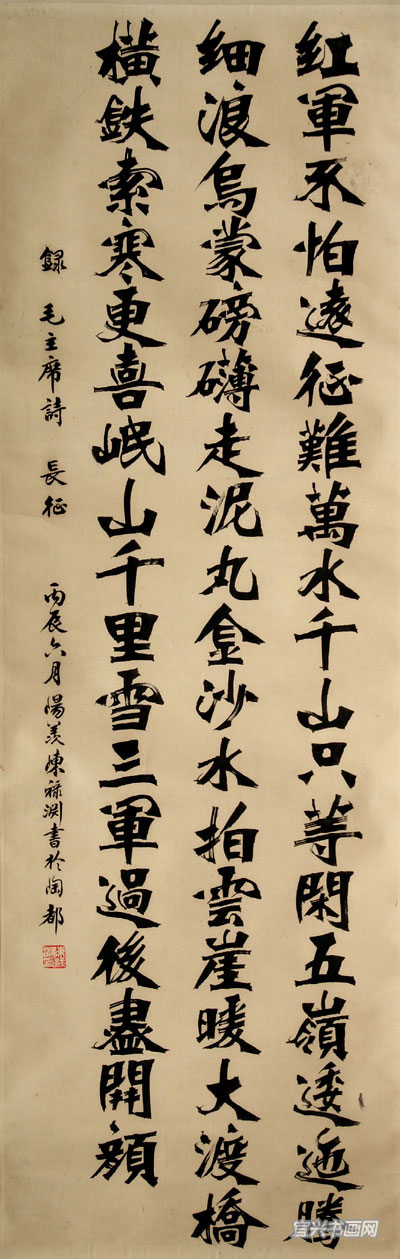 紅軍不怕遠征難萬水千山只等閑五嶺逶迤騰
細浪烏蒙磅礴走泥丸金沙水拍雲崖暖大渡橋
橫鉄索寒更喜岷山千里雪三軍過後盡開顏
録 毛主席詩 長征 丙辰六月陽羨陳祿渊書於陶都
宜兴书画网